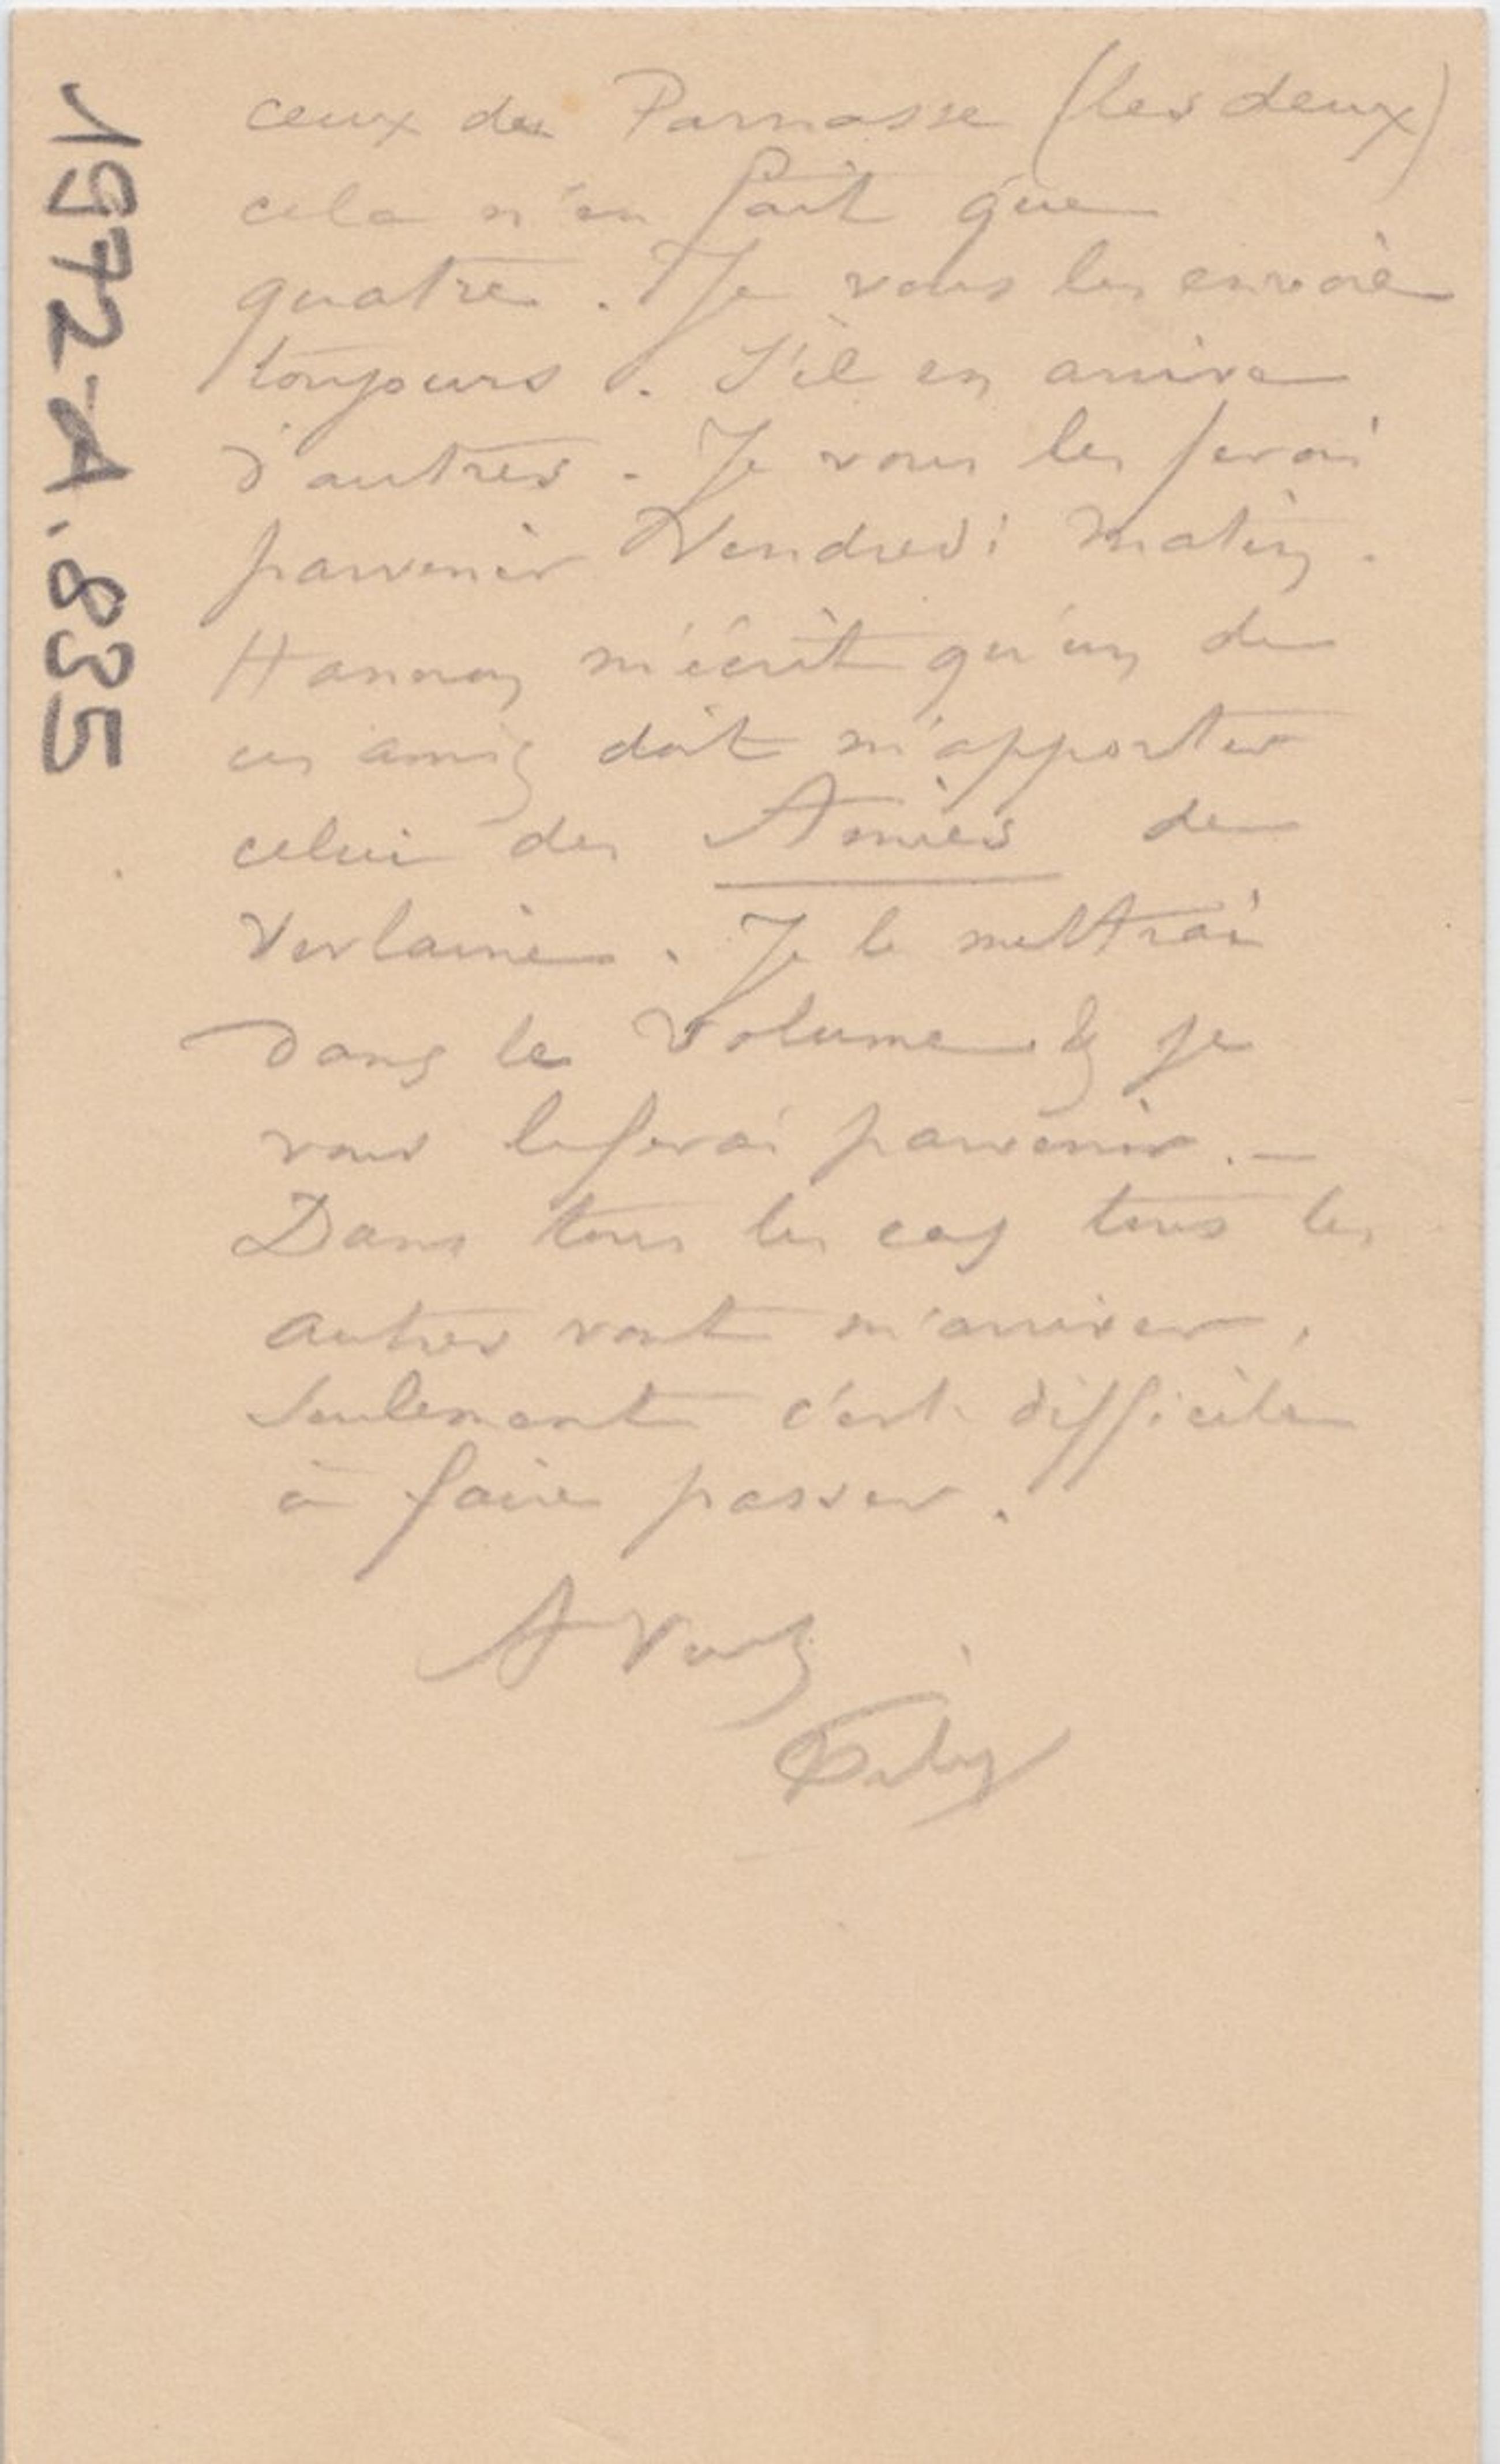 1972-A.835
ceux du Parnasse (les deux)
cela n'en fait que
quatre. Je vous les envoie
toujours. S'il en arrive
d'autres. Je vous les ferai
parvenir Vendredi matin.
Hannon m'écrit qu'un de
ces amis doit m'apporter
celui des Amies de
Verlaine. Je le mettrai
dans le volume & je
vous le ferai parvenir. —
Dans tous les cas tous les
autres vont m'arriver,
seulement c'est difficile
à faire passer.
A Vous